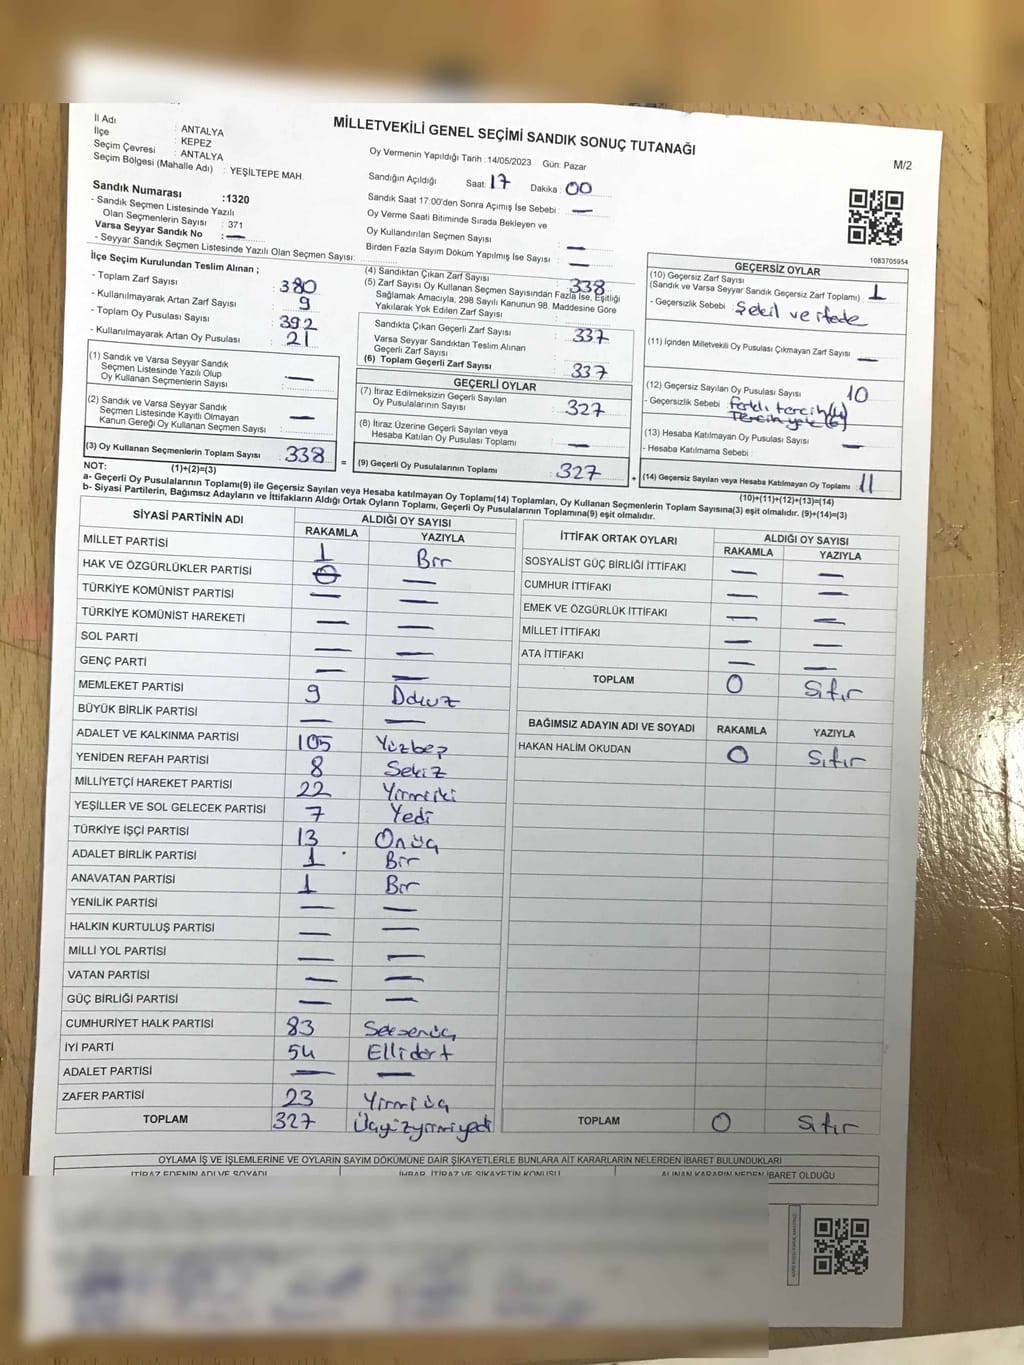 İl Adı : ANTALYA
İlçe : KEPEZ
Seçim Çevresi : ANTALYA
Seçim Bölgesi (Mahalle Adı) : YEŞİLTEPE MAH.
MİLLETVEKİLİ GENEL SEÇİMİ SANDIK SONUÇ TUTANAĞI
M/2
Oy Vermenin Yapıldığı Tarih :14/05/2023 Gün: Pazar
Sandığın Açıldığı Saat: 17 Dakika : 00
Sandık Saat 17:00'den Sonra Açımış İse Sebebi : —
Oy Verme Saati Bitiminde Sırada Bekleyen ve
Oy Kullandırılan Seçmen Sayısı : —
Birden Fazla Sayım Döküm Yapılmış İse Sayısı : —
Sandık Numarası :1320
- Sandık Seçmen Listesinde Yazılı
Olan Seçmenlerin Sayısı : 371
Varsa Seyyar Sandık No : —
- Seyyar Sandık Seçmen Listesinde Yazılı Olan Seçmen Sayısı:
1083705954
İlçe Seçim Kurulundan Teslim Alınan ;
- Toplam Zarf Sayısı : 380
- Kullanılmayarak Artan Zarf Sayısı : 9
- Toplam Oy Pusulası Sayısı : 392
- Kullanılmayarak Artan Oy Pusulası : 21
(1) Sandık ve Varsa Seyyar Sandık
Seçmen Listesinde Yazılı Olup
Oy Kullanan Seçmenlerin Sayısı : —
(2) Sandık ve Varsa Seyyar Sandık
Seçmen Listesinde Kayıtlı Olmayan
Kanun Gereği Oy Kullanan Seçmen Sayısı : —
(3) Oy Kullanan Seçmenlerin Toplam Sayısı : 338
(4) Sandıktan Çıkan Zarf Sayısı : 338
(5) Zarf Sayısı Oy Kullanan Seçmen Sayısından Fazla İse, Eşitliği
Sağlamak Amacıyla, 298 Sayılı Kanunun 98. Maddesine Göre
Yakılarak Yok Edilen Zarf Sayısı :
Sandıkta Çıkan Geçerli Zarf Sayısı : 337
Varsa Seyyar Sandıktan Teslim Alınan
Geçerli Zarf Sayısı :
(6) Toplam Geçerli Zarf Sayısı : 337
GEÇERLİ OYLAR
(7) İtiraz Edilmeksizin Geçerli Sayılan
Oy Pusulalarının Sayısı : 327
(8) İtiraz Üzerine Geçerli Sayılan veya
Hesaba Katılan Oy Pusulası Toplamı : —
= (9) Geçerli Oy Pusulalarının Toplamı : 327
GEÇERSİZ OYLAR
(10) Geçersiz Zarf Sayısı
(Sandık ve Varsa Seyyar Sandık Geçersiz Zarf Toplamı) : 1
- Geçersizlik Sebebi : Şekil ve ifade
(11) İçinden Milletvekili Oy Pusulası Çıkmayan Zarf Sayısı : —
(12) Geçersiz Sayılan Oy Pusulası Sayısı : 10
- Geçersizlik Sebebi : farklı tercih(4)
Tercih yok (6)
(13) Hesaba Katılmayan Oy Pusulası Sayısı : —
- Hesaba Katılmama Sebebi :
+ (14) Geçersiz Sayılan veya Hesaba Katılmayan Oy Toplamı : 11
NOT: (1)+(2)=(3)
(10)+(11)+(12)+(13)=(14)
a- Geçerli Oy Pusulalarının Toplamı(9) ile Geçersiz Sayılan veya Hesaba katılmayan Oy Toplamı(14) Toplamları, Oy Kullanan Seçmenlerin Toplam Sayısına(3) eşit olmalıdır. (9)+(14)=(3)
b- Siyasi Partilerin, Bağımsız Adayların ve İttifakların Aldığı Ortak Oyların Toplamı, Geçerli Oy Pusulalarının Toplamına(9) eşit olmalıdır.
SİYASİ PARTİNİN ADI ALDIĞI OY SAYISI
RAKAMLA YAZIYLA
MİLLET PARTİSİ 1 Bir
HAK VE ÖZGÜRLÜKLER PARTİSİ 0 —
TÜRKİYE KOMÜNİST PARTİSİ — —
TÜRKİYE KOMÜNİST HAREKETİ — —
SOL PARTİ — —
GENÇ PARTİ — —
MEMLEKET PARTİSİ 9 Dokuz
BÜYÜK BİRLİK PARTİSİ — —
ADALET VE KALKINMA PARTİSİ 105 Yüzbeş
YENİDEN REFAH PARTİSİ 8 Sekiz
MİLLİYETÇİ HAREKET PARTİSİ 22 Yirmiiki
YEŞİLLER VE SOL GELECEK PARTİSİ 7 Yedi
TÜRKİYE İŞÇİ PARTİSİ 13 Onüç
ADALET BİRLİK PARTİSİ 1 Bir
ANAVATAN PARTİSİ 1 Bir
YENİLİK PARTİSİ — —
HALKIN KURTULUŞ PARTİSİ — —
MİLLİ YOL PARTİSİ — —
VATAN PARTİSİ — —
GÜÇ BİRLİĞİ PARTİSİ — —
CUMHURİYET HALK PARTİSİ 83 Seksenüç
İYİ PARTİ 54 Ellidört
ADALET PARTİSİ — —
ZAFER PARTİSİ 23 Yirmiüç
TOPLAM 327 Üçyüzyirmiyedi
İTTİFAK ORTAK OYLARI ALDIĞI OY SAYISI
RAKAMLA YAZIYLA
SOSYALİST GÜÇ BİRLİĞİ İTTİFAKI — —
CUMHUR İTTİFAKI — —
EMEK VE ÖZGÜRLÜK İTTİFAKI — —
MİLLET İTTİFAKI — —
ATA İTTİFAKI — —
TOPLAM 0 Sıfır
BAĞIMSIZ ADAYIN ADI VE SOYADI RAKAMLA YAZIYLA
HAKAN HALİM OKUDAN 0 Sıfır
TOPLAM 0 Sıfır
OYLAMA İŞ VE İŞLEMLERİNE VE OYLARIN SAYIM DÖKÜMÜNE DAİR ŞİKAYETLERLE BUNLARA AİT KARARLARIN NELERDEN İBARET BULUNDUKLARI
İTİRAZ EDENİN ADI VE SOYADI İHBAR, İTİRAZ VE ŞİKAYETİN KONUSU ALINAN KARARIN NEDEN İBARET OLDUĞU